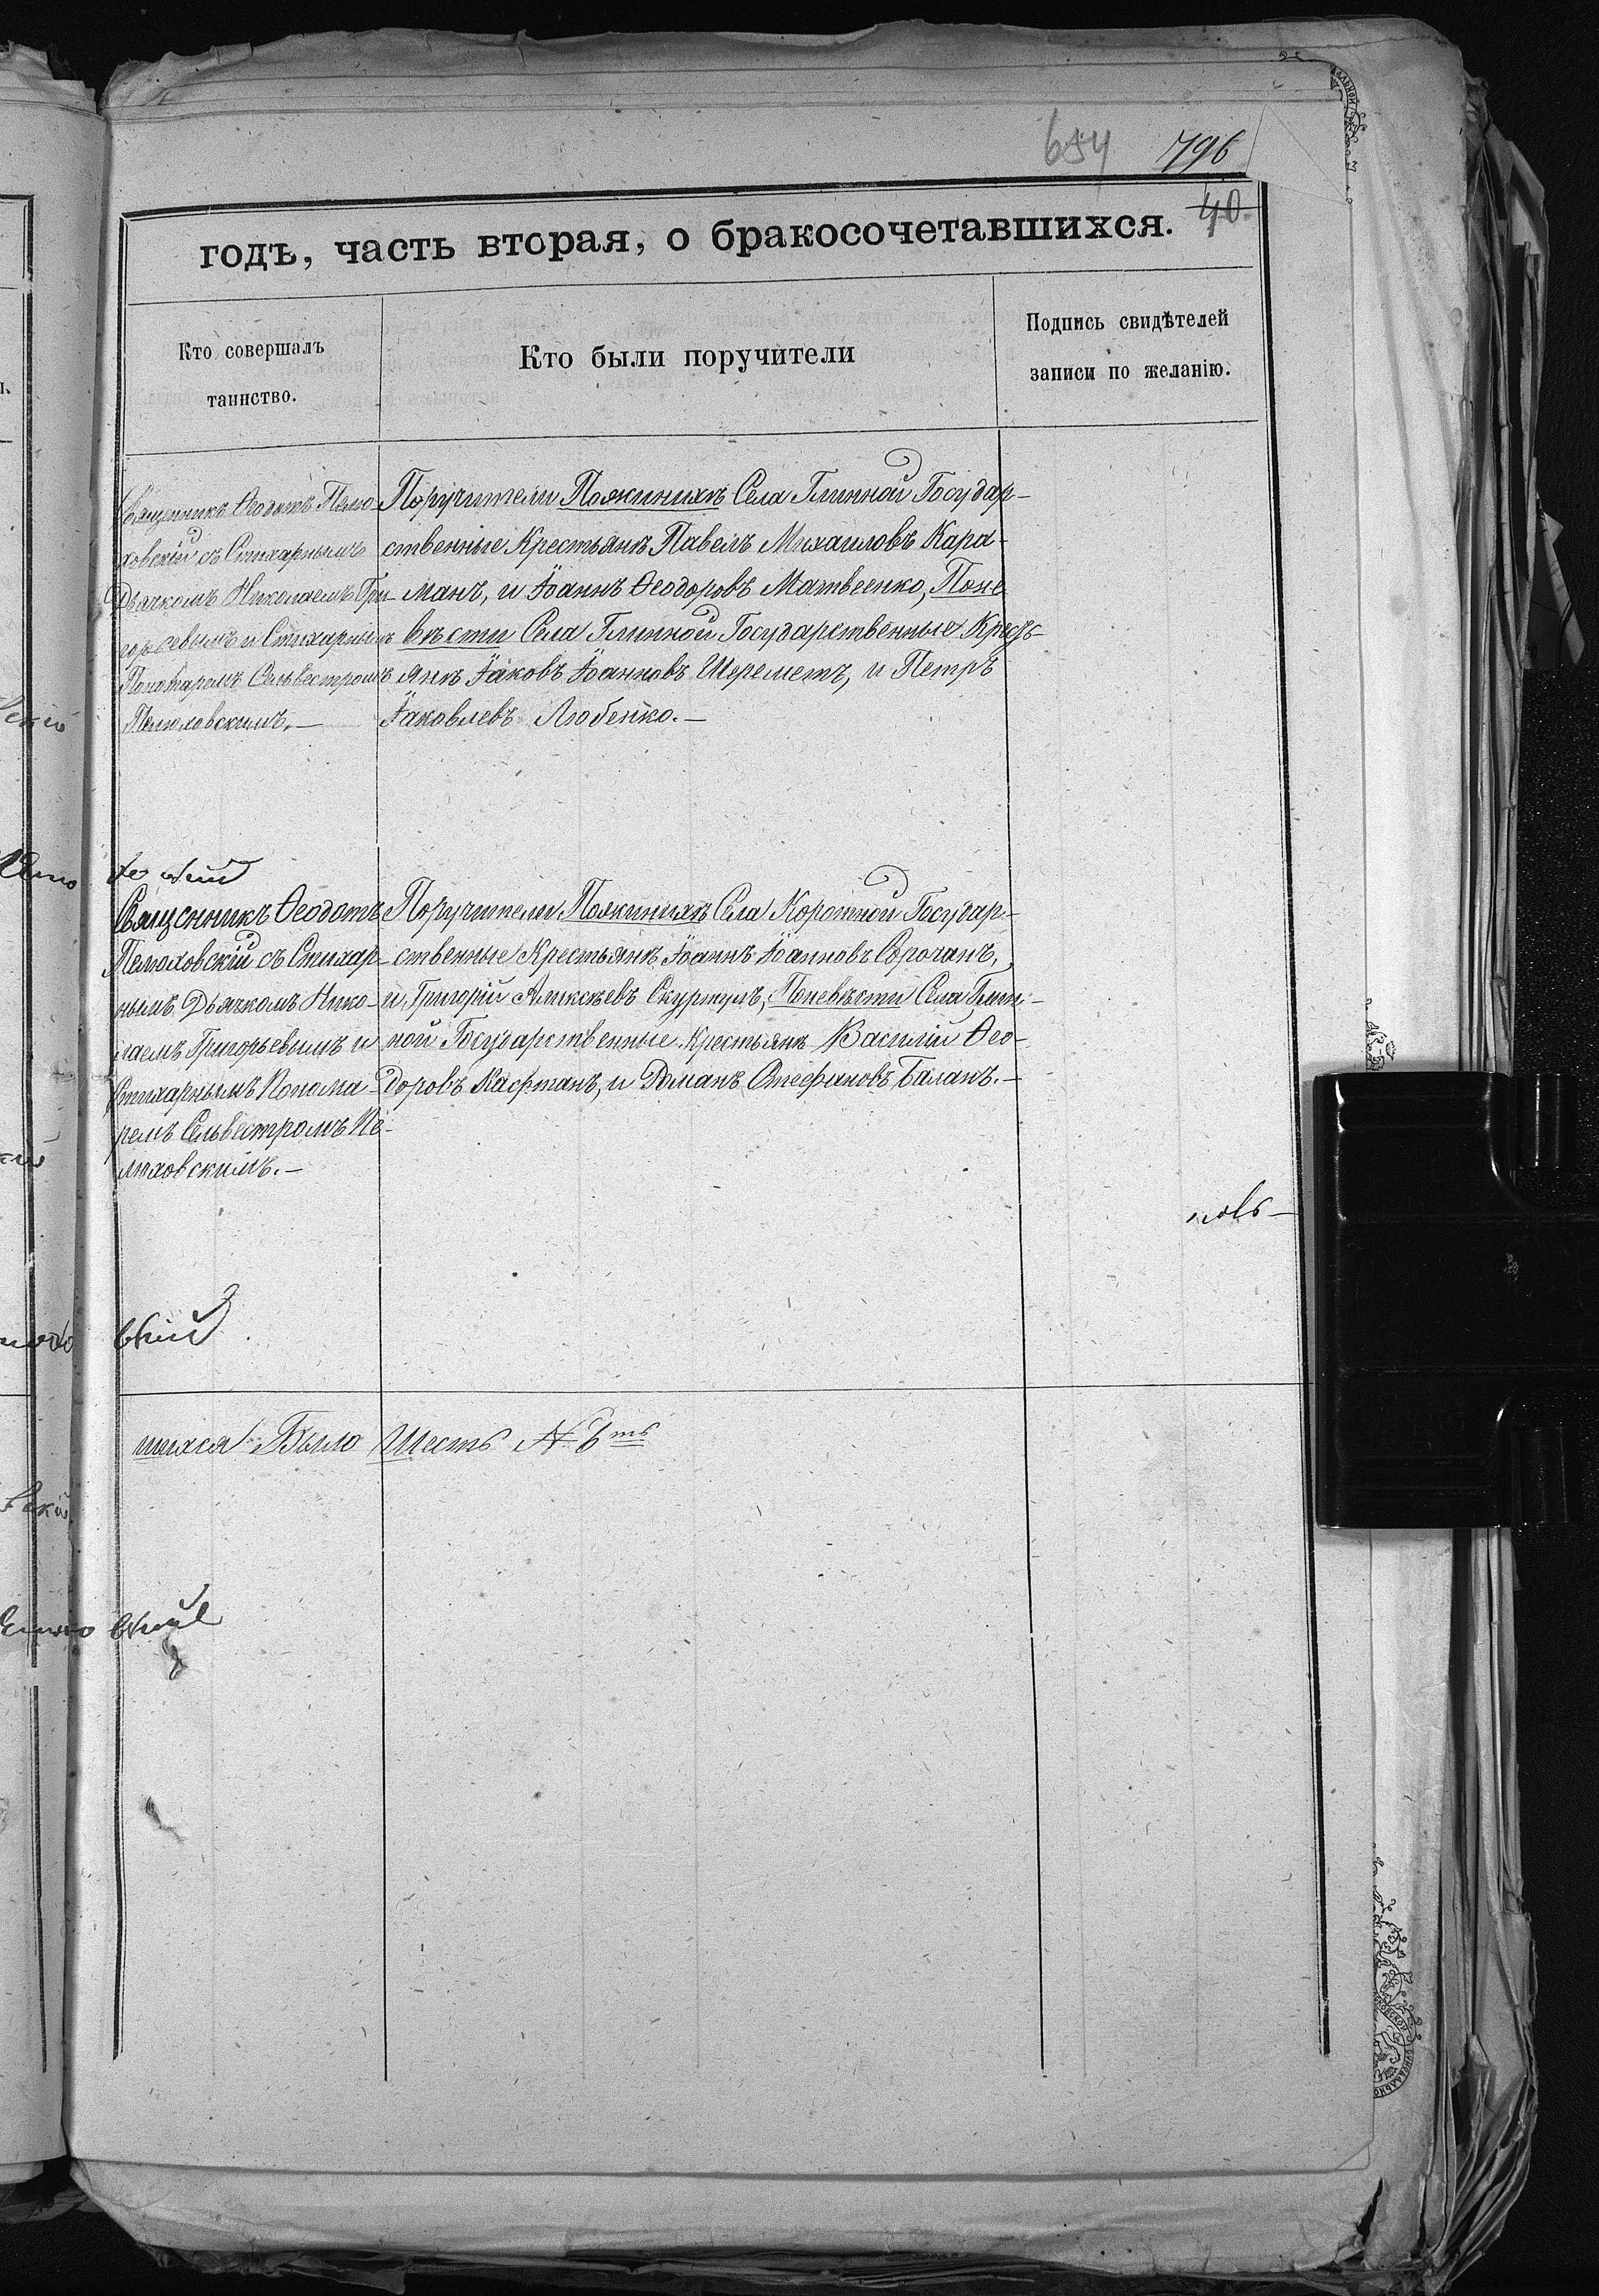 654 796
40.
годъ, часть вторая, о бракосочетавшихся.
Кто совершалъ
таинство.
Кто были поручители
Подпись свидѣтелей
записи по желанію.
Священникъ Ѳеодотъ Пелю-
ховскій съ Стихарнымъ
Дьячкомъ Николаемъ Гри-
горьевымъ и Стихарнымъ
Пономаремъ Сельвестромъ
Пелюховскимъ.—
Поручители Поженихѣ Села Глинной Государ-
ственные Крестьянѣ Павелъ Михаиловъ Кара-
манъ, и Іоаннъ Ѳеодоровъ Матвеенко, Поне
вѣсти Села Глинной Государственные Кресть-
янѣ Іаковъ Іоанновъ Шереметъ, и Петръ
Іаковлевъ Любенко.—
Священникъ Ѳеодотъ
Пелюховскій съ Стихар-
нымъ Дьячкомъ Нико-
лаемъ Григорьевымъ и
Стихарнымъ Понома-
ремъ Сельвестромъ Пе-
люховскимъ.—
Поручители Поженихѣ Села Коротной Государ-
ственные Крестьянѣ Іоаннъ Іоанновъ Сорочанъ,
и Григорій Алексѣевъ Скуртулъ, Поневѣсти Села Глин-
ной Государственные Крестьянѣ Василій Ѳео-
доровъ Кафтанъ, и Доманъ Стефановъ Баланъ.—
новъ—
вскій
шихся Было Шесть № 6ть
вскій